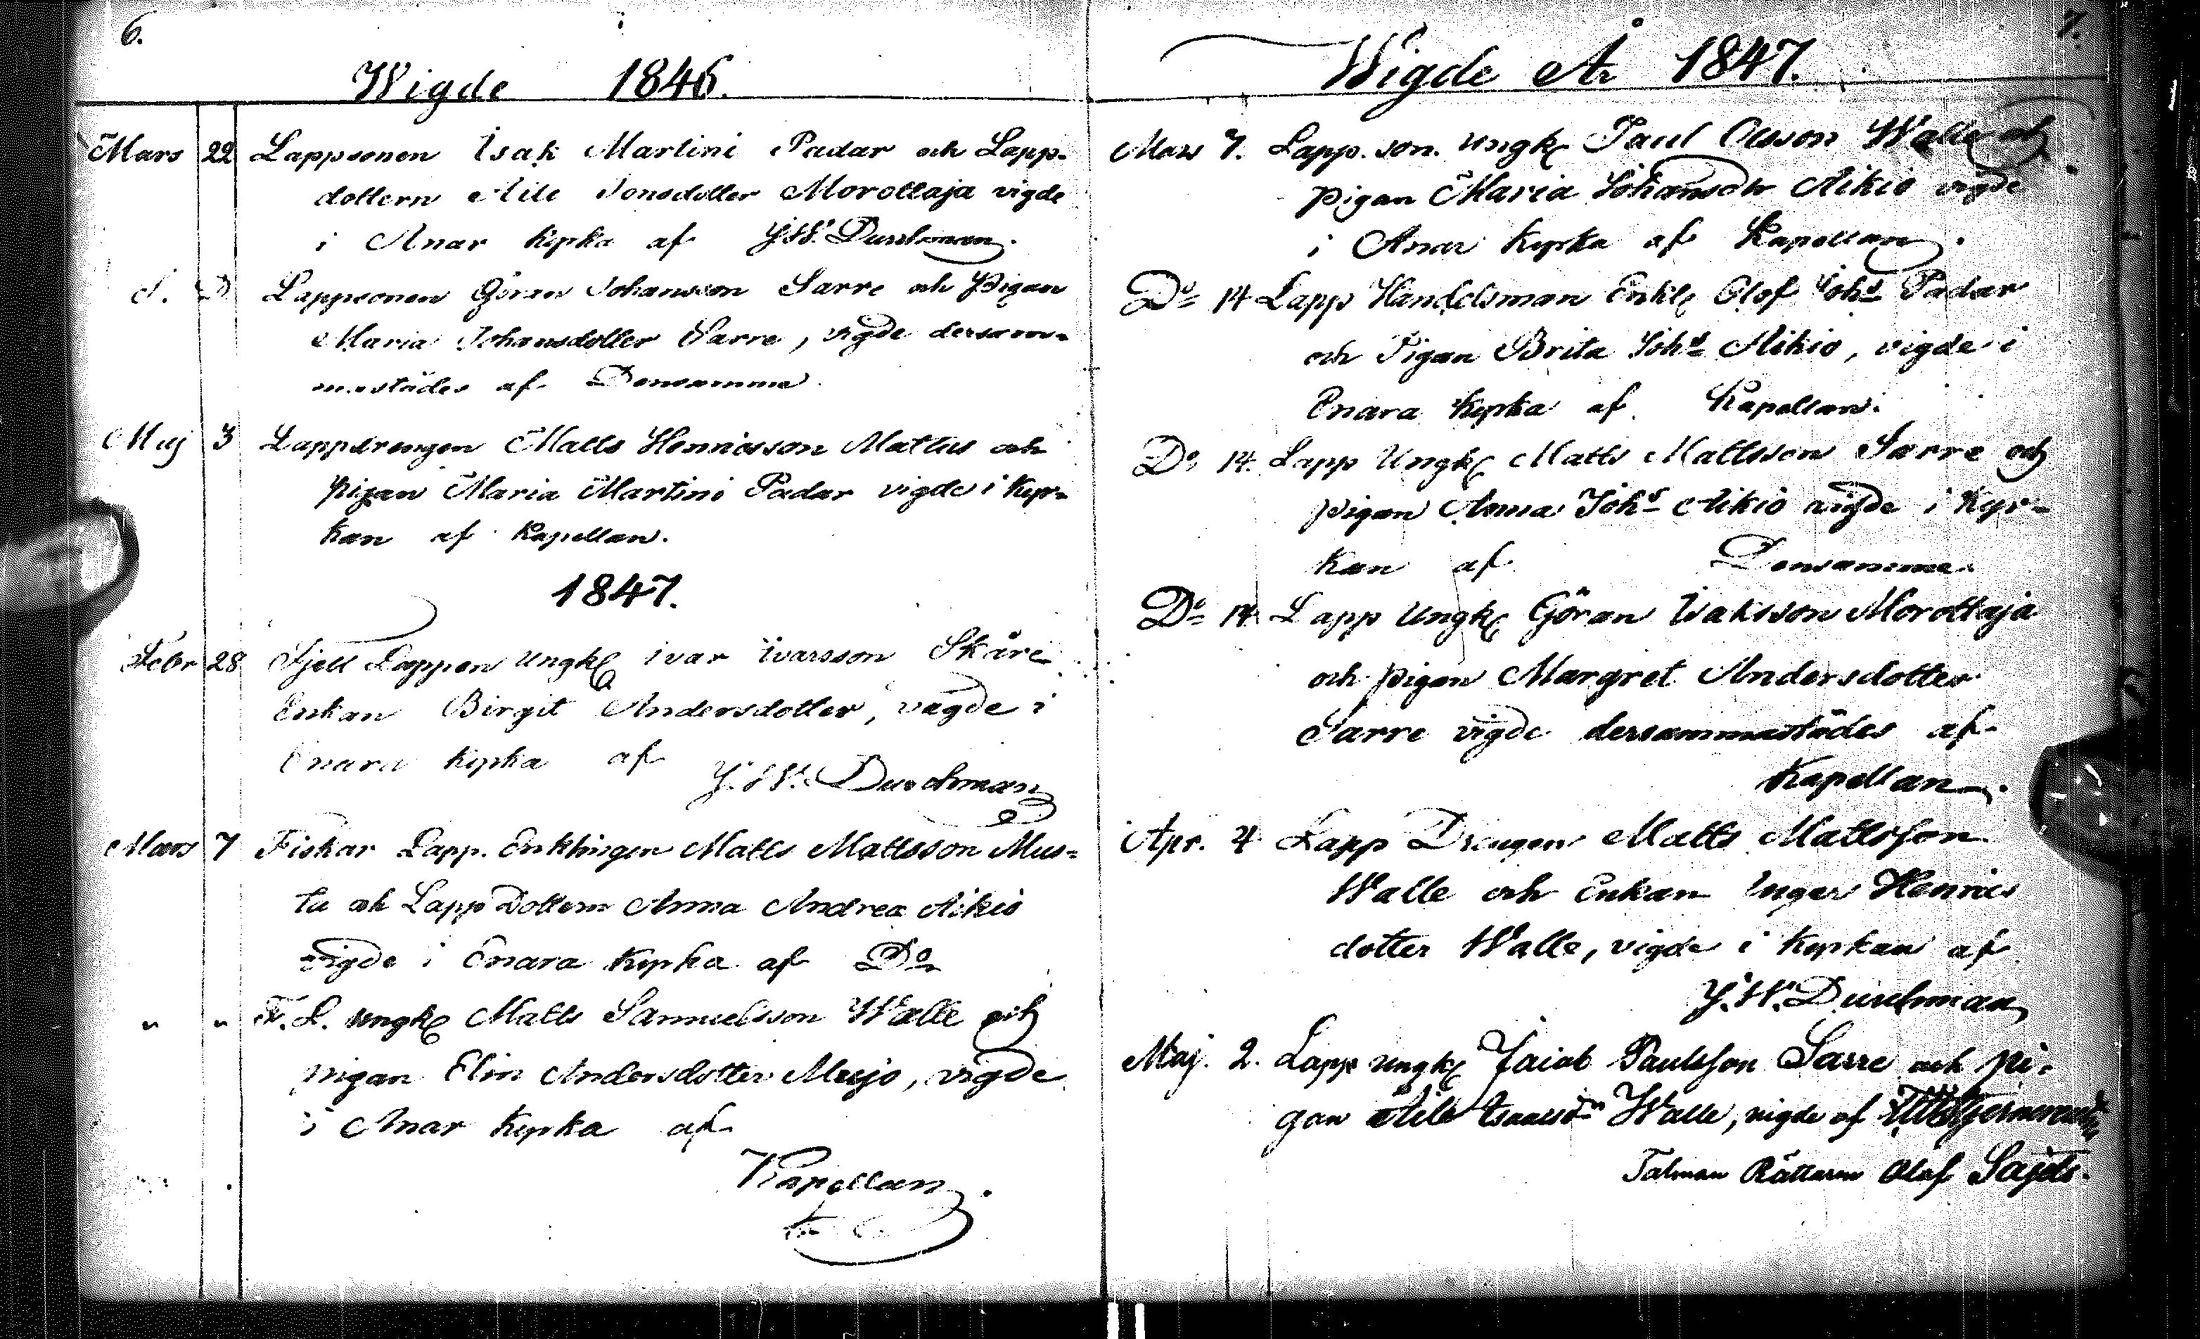 6.
Wigde 1846.
Mars 22 Lappsonen Isak Martini Padar och Lapp-
dottern Aile Jonsdotter Morottaja vigde
i Anar kyrka af J.W. Durchman.
d. D Lappsonen Göran Johansson Sarre och Pigan
Maria Johansdotter Sarre, vigde dersam-
mastädes af Densamma.
Maj 3 Lappdrengen Matts Henricsson Mattus och
pigan Maria Martini Padar vigde i kyr-
kan af Kapellan.
1847.
Febr 28 Fjell Lappen Ungk Ivar Ivarsson Skåre
Enkan Birgit Andersdotter, vigde i
Enara kyrka af
J.W. Durchman
Mars 7 Fiskar Lapp. Enklingen Matts Mattsson Mus-
ta och Lapp Dottern Anna Andrea Aikio
vigde i Enara kyrka af Do
" " F. L. Ungk Matts Samuelsson Walle och
pigan Elin Andersdotter Mujo, vigde
i Anar kyrka af
Kapellan.
7.
Wigde År 1847.
Mars 7. Lapp. son. Ungk Paul Olsson Walle och
pigan Maria Johansdtr Aikio vigde
i Anar kyrka af Kapellan.
Do 14 Lapp Handelsman Enkl Olof Johs Padar
och Pigan Brita Johs Aikio, vigde i
Enara kyrka af Kapellan.
Do 14. Lapp Ungk Matts Mattsson Sarre och
pigan Anna Johs Aikio vigde i Kyr-
kan af Densamma.
Do 14. Lapp Ungk Göran Isaksson Morottaja
och pigan Margret Andersdotter
Sarre vigde dersammastädes af
Kapellan.
Apr. 4 Lapp Drengen Matts Mattsson
Walle och Enkan Inger Henrics
dotter Walle, vigde i kyrkan af
J.W. Durchman
Maj. 2. Lapp ungk Jacob Paulsson Sarre och pi-
gan Aile Walle, vigde af
Talman Rättaren Olof Sajets.